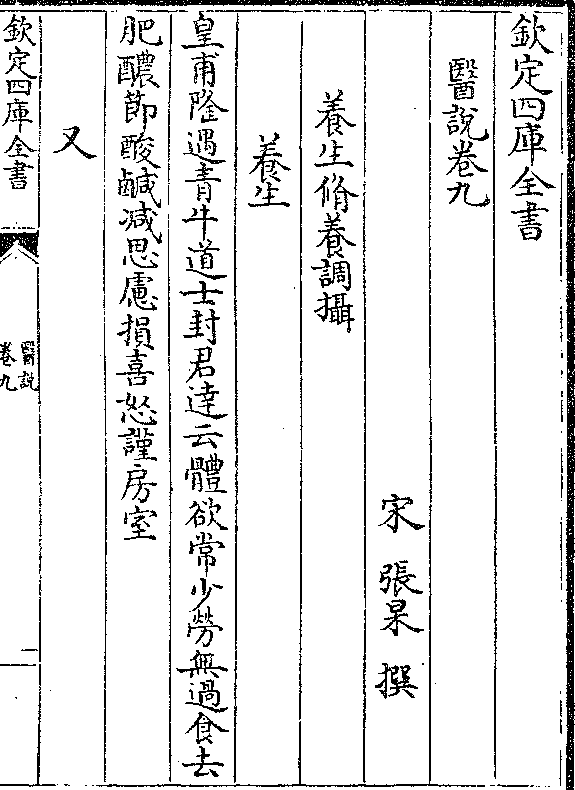 欽定四庫全書
醫說卷九
宋 張杲 撰
養生脩養調攝
養生
皇甫隆遇青牛道士封君達云體欲常少勞無過食去
肥醲節酸鹹减思慮損喜怒謹房室
又
欽定四庫全書
醫說
卷九
一